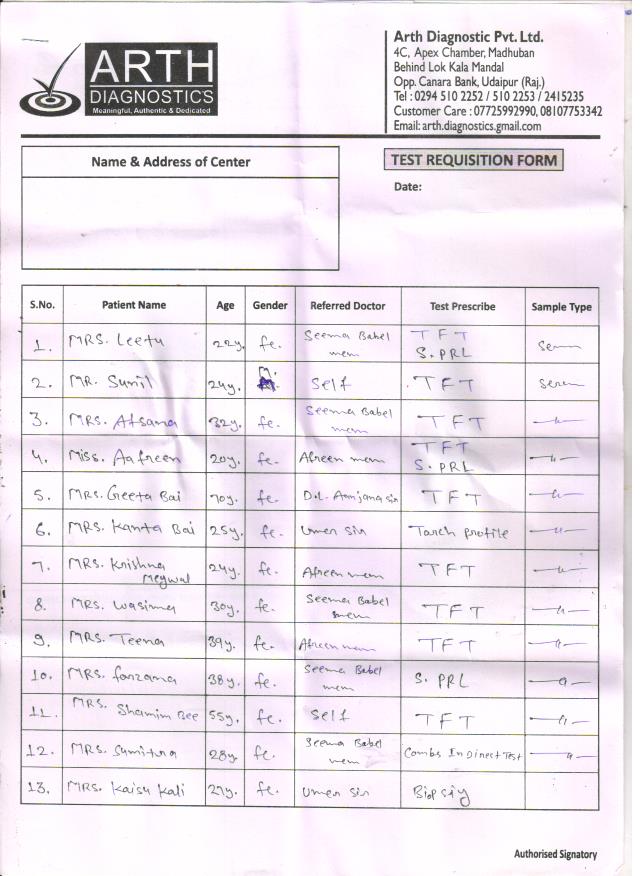 ARTH
DIAGNOSTICS
Meaningful, Authentic & Dedicated
Arth Diagnostic Pvt. Ltd.
4C, Apex Chamber, Madhuban
Behind Lok Kala Mandal
Opp. Canara Bank, Udaipur (Raj.)
Tel : 0294 510 2252 / 510 2253 / 2415235
Customer Care : 07725992990, 08107753342
Email: arth.diagnostics.gmail.com
Name & Address of Center
TEST REQUISITION FORM
Date:
S.No. Patient Name Age Gender Referred Doctor Test Prescribe Sample Type
1. MRS. Leetu 22y. fe. Seema Babel mem TFT S. PRL
2. MR. Sunil 24y. M. Self TFT Serem
3. MRS. Afsana 32y. fe. Seema Babel mem TFT —"—
4. Miss. Aafreen 20y. fe. Afreen mem TFT S. PRL —"—
5. MRS. Geeta Bai 70y. fe. TFT —"—
6. MRS. Kanta Bai 25y. fe. Umer sir Torch profile —"—
7. MRS. Krishna Megwal 24y. fe. Afreen mem TFT —"—
8. MRS. Wasima 30y. fe. Seema Babel mem TFT —"—
9. MRS. Teena 39y. fe. Afreen mem TFT —"—
10. MRS. farzana 38y. fe. Seema Babel mem S. PRL —"—
11. MRS. Shamim Bee 55y. fe. Self TFT —"—
12. MRS. Sumitra 28y. fe. Seema Babel mem Combs InDirect Test —"—
13. MRS. Kaisu Kali 27y. fe. Umer sir Biopsiy
Authorised Signatory